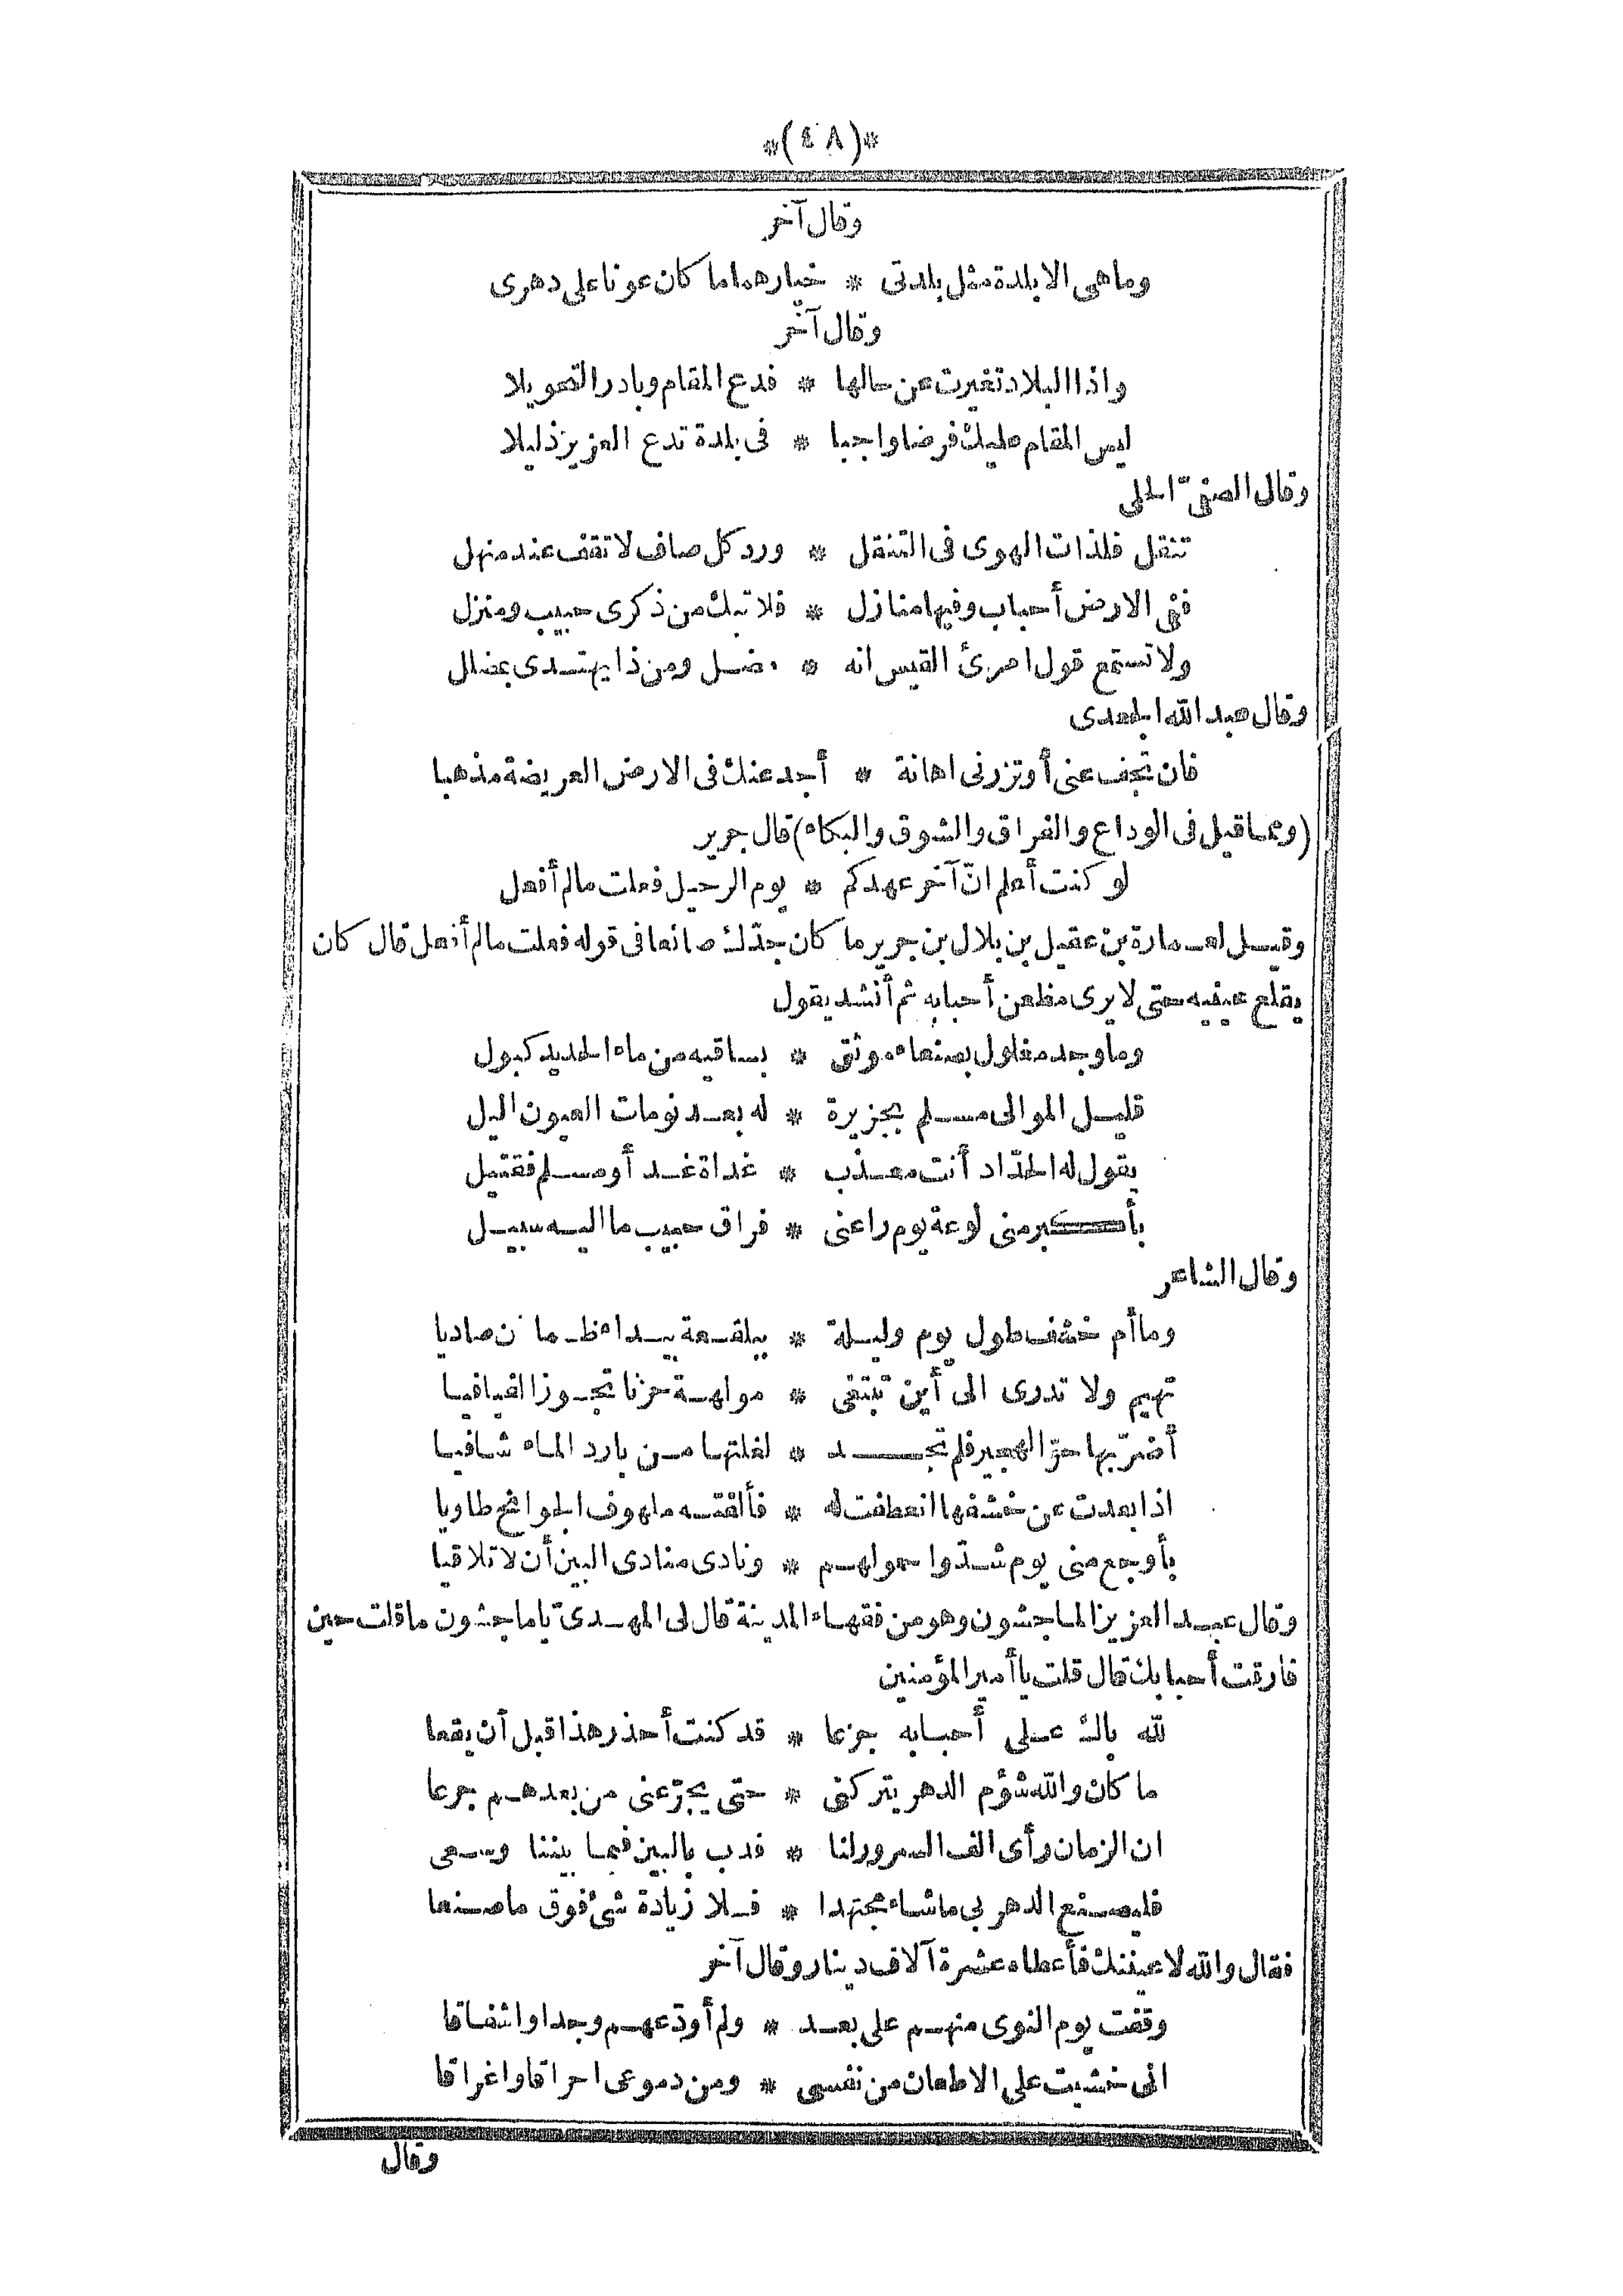 *(٤٨)*
وقال آخر
وماهى الابلدة مثل بلدتى * خيارهما ما كان عونا على دهرى
وقال آخر
واذا البلاد تغيرت عن حالها * فدع المقام وبادر التحويلا
ليس المقام عليك فرضا واجبا * فى بلدة تدع العزيز ذليلا
وقال الصفىّ الحلى
تنقل فلذات الهوى فى التنقل * ورد كل صاف لا تقف عند منهل
ففى الارض أحباب وفيها منازل * فلا تبك من ذكرى حبيب ومنزل
ولا تستمع قول امرئ القيس انه * مضل ومن ذا يهتدى بمضلل
وقال عبد الله الجعدى
فان تجف عنى أو تزرنى اهانة * أجد عنك فى الارض العريضة مذهبا
(ومما قيل فى الوداع والفراق والشوق والبكاء) قال جرير
لو كنت أعلم انّ آخر عهدكم * يوم الرحيل فعلت مالم أفعل
وقيل لعمارة بن عقيل بن بلال بن جرير ما كان جدّك صانعا فى قوله فعلت مالم أفعل قال كان
يقلع عينيه حتى لا يرى مظعن أحبابه ثم أنشد يقول
وما وجد مغلول بصنعاء موثق * بساقيه من ماء الحديد كبول
قليل الموالى مسلم بجزيرة * له بعد نومات العيون اليل
يقول له الحدّاد أنت معذب * غداة غد أو مسلم فقتيل
بأكبر منى لوعة يوم راعنى * فراق حبيب ما اليه سبيل
وقال الشاعر
وما أم خشف طول يوم وليلة * ببلقعة بيداء ظمآن صاديا
تهيم ولا تدرى الى أين تبتغى * مولهة حزنا تجوز الفيافيا
أضرّ بها حرّ الهجير فلم تجد * لغلتها من بارد الماء شافيا
اذا بعدت عن خشفها انعطفت له * فألفته ملهوف الجوانح طاويا
بأوجع منى يوم شدّوا حمولهم * ونادى منادى البين أن لا تلاقيا
وقال عبد العزيز الماجشون وهو من فقهاء المدينة قال لى المهدىّ يا ماجشون ما قلت حين
فارقت أحبابك قال قلت يا أمير المؤمنين
لله باك على أحبابه جزعا * قد كنت أحذر هذا قبل أن يقعا
ما كان والله شؤم الدهر يتركنى * حتى يجرّعنى من بعدهم جرعا
ان الزمان رأى الف السرور لنا * فدب بالبين فيما بيننا وسعى
فليصنع الدهر بى ما شاء مجتهدا * فلا زيادة شئ فوق ما صنعا
فقال والله لاعيننك فأعطاه عشرة آلاف دينار وقال آخر
وقفت يوم النوى منهم على بعد * ولم أودّعهم وجدا واشفاقا
انى خشيت على الاظعان من نفسى * ومن دموعى احراقا واغراقا
وقال